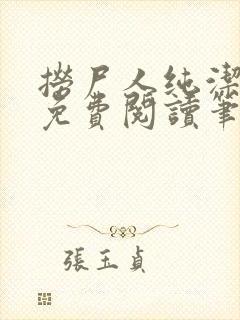 撈尸人純潔
免費閱讀筆
張玉貞